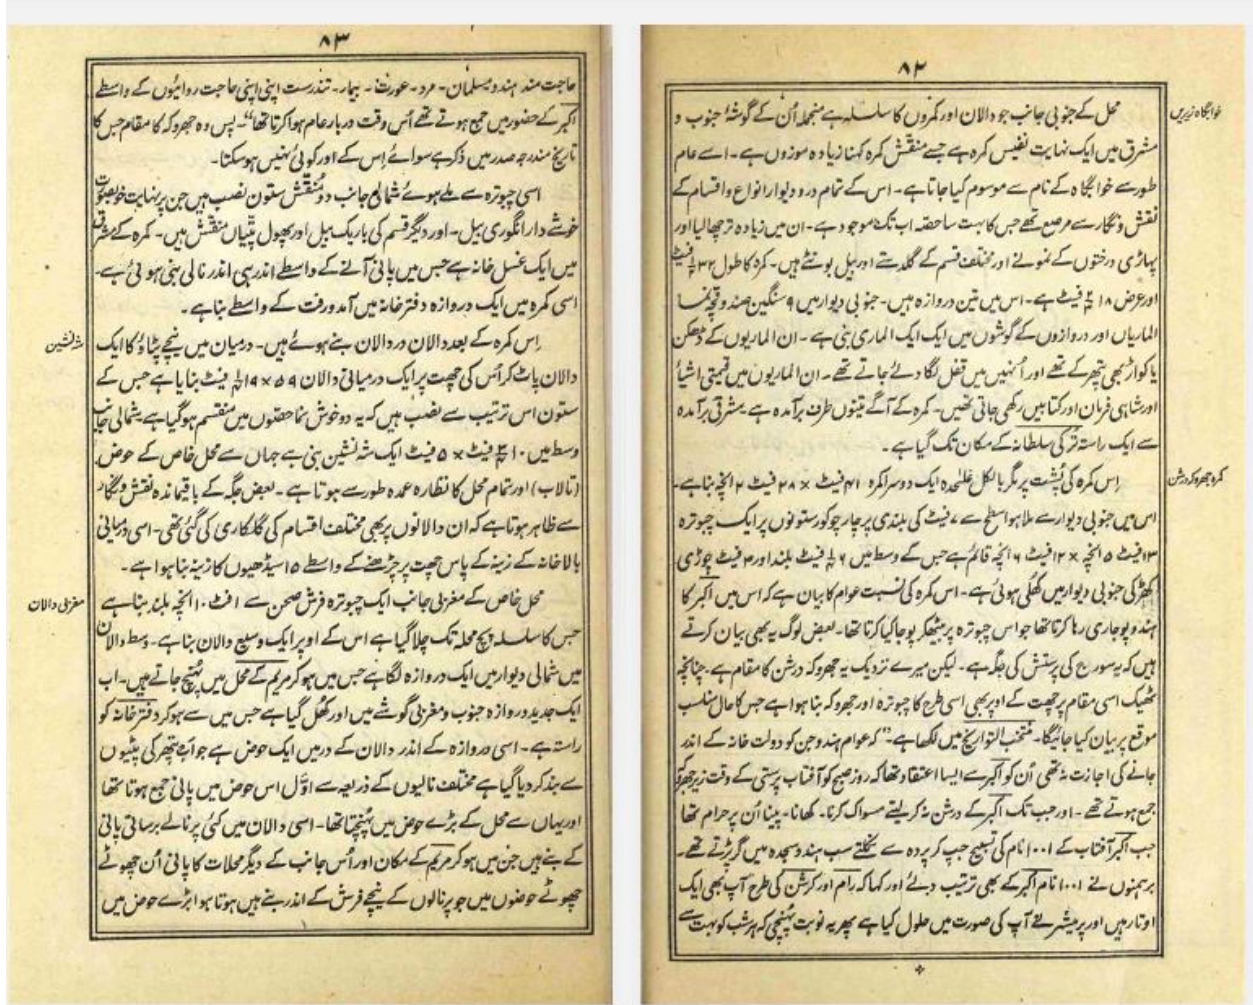 ۸۲
خوابگاہ زیریں
محل کے جنوبی جانب جو دالان اور کمروں کا سلسلہ ہے منجملہ اُن کے گوشۂ جنوب و
مشرق میں ایک نہایت نفیس کمرہ ہے جسے منقش کمرہ کہنا زیادہ موزوں ہے۔ اسے عام
طور سے خوابگاہ کے نام سے موسوم کیا جاتا ہے۔ اس کے تمام در و دیوار انواع و اقسام کے
نقش و نگار سے مرصع تھے جس کا بہت سا حصہ اب تک موجود ہے۔ ان میں زیادہ تر چھالیا اور
پہاڑی درختوں کے نمونے اور مختلف قسم کے گلدستے اور بیل بوٹے ہیں۔ کمرہ کا طول ۳۲ فیٹ
اور عرض ۱۸ فیٹ ہے۔ اس میں تین دروازہ ہیں۔ جنوبی دیوار میں ۹ سنگین صندوقچہ نما
الماریاں اور دروازوں کے گوشوں میں ایک ایک الماری بنی ہے۔ ان الماریوں کے ڈھکن
یا کواڑ بھی پتھر کے تھے اور اُنہیں میں قفل لگا دئے جاتے تھے۔ ان الماریوں میں قیمتی اشیأ
اور شاہی فرمان اور کتابیں رکھی جاتی تھیں۔ کمرہ کے آگے تینوں طرف برآمدہ ہے۔ مشرقی برآمدہ
سے ایک راستہ ترکی سلطانہ کے مکان تک گیا ہے۔
کمرہ جھروکہ درشن
اِس کمرہ کی پُشت پر مگر بالکل علٰحدہ ایک دوسرا کمرہ ۴۱ فیٹ × ۲۸ فیٹ ۲ انچہ بنا ہے۔
اس میں جنوبی دیوار سے ملا ہوا سطح سے ۷ فیٹ کی بلندی پر چار چوکور ستونوں پر ایک چبوترہ
۱۳ فیٹ ۵ انچہ × ۱۲ فیٹ ۶ انچہ قائم ہے جس کے وسط میں ۶ فیٹ بلند اور ۴ فیٹ چوڑی
کھڑکی جنوبی دیوار میں کھلی ہوئی ہے۔ اس کمرہ کی نسبت عوام کا بیان ہے کہ اس میں اکبر کا
ہندو پوجاری رہا کرتا تھا جو اس چبوترہ پر بیٹھکر پوجا کیا کرتا تھا۔ بعض لوگ یہ بھی بیان کرتے
ہیں کہ یہ سورج کی پرستش کی جگہ ہے۔ لیکن میرے نزدیک یہ جھروکہ درشن کا مقام ہے۔ چنانچہ
ٹھیک اسی مقام پر چھت کے اوپر بھی اسی طرح کا چبوترہ اور جھروکہ بنا ہوا ہے جس کا حال مناسب
موقع پر بیان کیا جائیگا۔ منتخب التواریخ میں لکھا ہے "کہ عوام ہندو جن کو دولت خانہ کے اندر
جانے کی اجازت نہ تھی اُن کو اکبر سے ایسا اعتقاد تھا کہ روز صبح کو آفتاب پرستی کے وقت زیر جھروکہ
جمع ہوتے تھے۔ اور جب تک اکبر کے درشن نہ کر لیتے مسواک کرنا۔ کھانا۔ پینا اُن پر حرام تھا
جب اکبر آفتاب کے ۱۰۰۱ نام کی تسبیح جپ کر پردہ سے نکلتے سب ہندو سجدہ میں گر پڑتے تھے۔
برہمنوں نے ۱۰۰۱ نام اکبر کے بھی ترتیب دئے اور کہا کہ رام اور کرشن کی طرح آپ بھی ایک
اوتار ہیں اور پرمیشر نے آپ کی صورت میں حلول کیا ہے پھر یہ نوبت پہنچی کہ ہر شب کو بہت سے
۸۳
حاجت مند ہندو مسلمان۔ مرد۔ عورت۔ بیمار۔ تندرست اپنی اپنی حاجت روائیوں کے واسطے
اکبر کے حضور میں جمع ہوتے تھے اُس وقت دربار عام ہوا کرتا تھا"۔ پس وہ جھروکہ کا مقام جس کا
تاریخ مندرجہ صدر میں ذکر ہے سوائے اِس کے اور کوئی نہیں ہو سکتا۔
اسی چبوترہ سے ملے ہوئے شمالی جانب دو منقش ستون نصب ہیں جن پر نہایت خوبصورت
خوشے دار انگوری بیل۔ اور دیگر قسم کی باریک بیل اور پھول پتیاں منقش ہیں۔ کمرہ کے مشرق
میں ایک غسل خانہ ہے جس میں پانی آنے کے واسطے اندر ہی اندر نالی بنی ہوئی ہے۔
اسی کمرہ میں ایک دروازہ دفتر خانہ میں آمد و رفت کے واسطے بنا ہے۔
شہ نشین
اِس کمرہ کے بعد دالان در دالان بنے ہوئے ہیں۔ درمیان میں نیچے پٹاؤ کا ایک
دالان پاٹ کر اُس کی چھت پر ایک درمیانی دالان ۵۹ × ۱۹ فیٹ بنایا ہے جس کے
ستون اس ترتیب سے نصب ہیں کہ یہ دو خوش نما حصوں میں منقسم ہو گیا ہے شمالی جانب
وسط میں ۱۰ فیٹ × ۵ فیٹ ایک شہ نشین بنی ہے جہاں سے محل خاص کے حوض
(تالاب) اور تمام محل کا نظارہ عمدہ طور سے ہوتا ہے۔ بعض جگہ کے باقیماندہ نقش و نگار
سے ظاہر ہوتا ہے کہ ان دالانوں پر بھی مختلف اقسام کی گلکاری کی گئی تھی۔ اسی درمیانی
بالا خانہ کے زینہ کے پاس چھت پر چڑھنے کے واسطے ۱۵ سیڑھیوں کا زینہ بنا ہوا ہے۔
مغربی دالان
محل خاص کے مغربی جانب ایک چبوترہ فرش صحن سے ۱ فٹ ۱۰ انچہ بلند بنا ہے
جس کا سلسلہ پیچ محلہ تک چلا گیا ہے اس کے اوپر ایک وسیع دالان بنا ہے۔ وسط دالان
میں شمالی دیوار میں ایک دروازہ لگا ہے جس میں ہو کر مریم کے محل میں پہنچ جاتے ہیں۔ اب
ایک جدید دروازہ جنوب و مغربی گوشے میں اور کھل گیا ہے جس میں سے ہو کر دفتر خانہ کو
راستہ ہے۔ اسی دروازہ کے اندر دالان کے در میں ایک حوض ہے جو اب پتھر کی پٹیوں
سے بند کر دیا گیا ہے مختلف نالیوں کے ذریعہ سے اوّل اس حوض میں پانی جمع ہوتا تھا
اور یہاں سے محل کے بڑے حوض میں پہنچتا تھا۔ اسی دالان میں کئی پرنالے برساتی پانی
کے بنے ہیں جن میں ہو کر مریم کے مکان اور اُس جانب کے دیگر محلات کا پانی اُن چھوٹے
چھوٹے حوضوں میں جو پرنالوں کے نیچے فرش کے اندر بنے ہیں ہوتا ہوا بڑے حوض میں